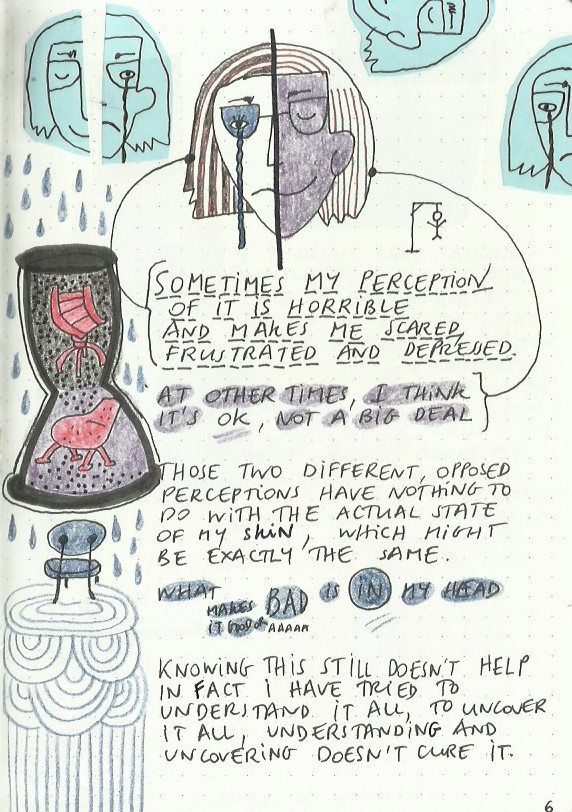 SOMETIMES MY PERCEPTION
OF IT IS HORRIBLE
AND MAKES ME SCARED,
FRUSTRATED AND DEPRESSED.
AT OTHER TIMES, I THINK
IT'S OK, NOT A BIG DEAL
THOSE TWO DIFFERENT, OPPOSED
PERCEPTIONS HAVE NOTHING TO
DO WITH THE ACTUAL STATE
OF MY SKIN, WHICH MIGHT
BE EXACTLY THE SAME.
WHAT
MAKES BAD IS IN MY HEAD
IT GOOD or AAAAA
KNOWING THIS STILL DOESN'T HELP
IN FACT I HAVE TRIED TO
UNDERSTAND IT ALL, TO UNCOVER
IT ALL, UNDERSTANDING AND
UNCOVERING DOESN'T CURE IT.
6